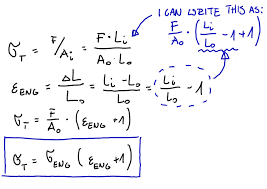 I CAN WRITE THIS AS:
σ_T = F/A_i = (F · L_i)/(A_o · L_o)
F/A_o · (L_i/L_o - 1 + 1)
ε_ENG = ΔL/L_o = (L_i - L_o)/L_o = L_i/L_o - 1
σ_T = F/A_o · (ε_ENG + 1)
σ_T = σ_ENG (ε_ENG + 1)